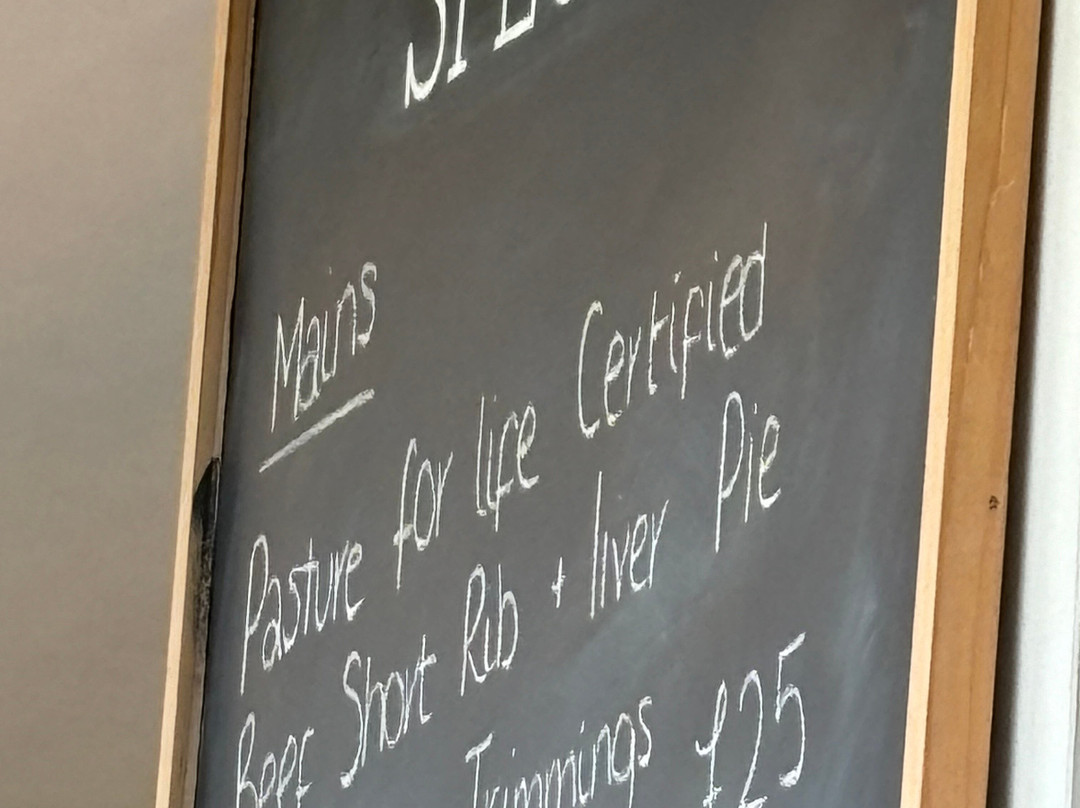 Mains
Pasture for life Certified
Beef Short Rib + liver Pie
Trimmings £25